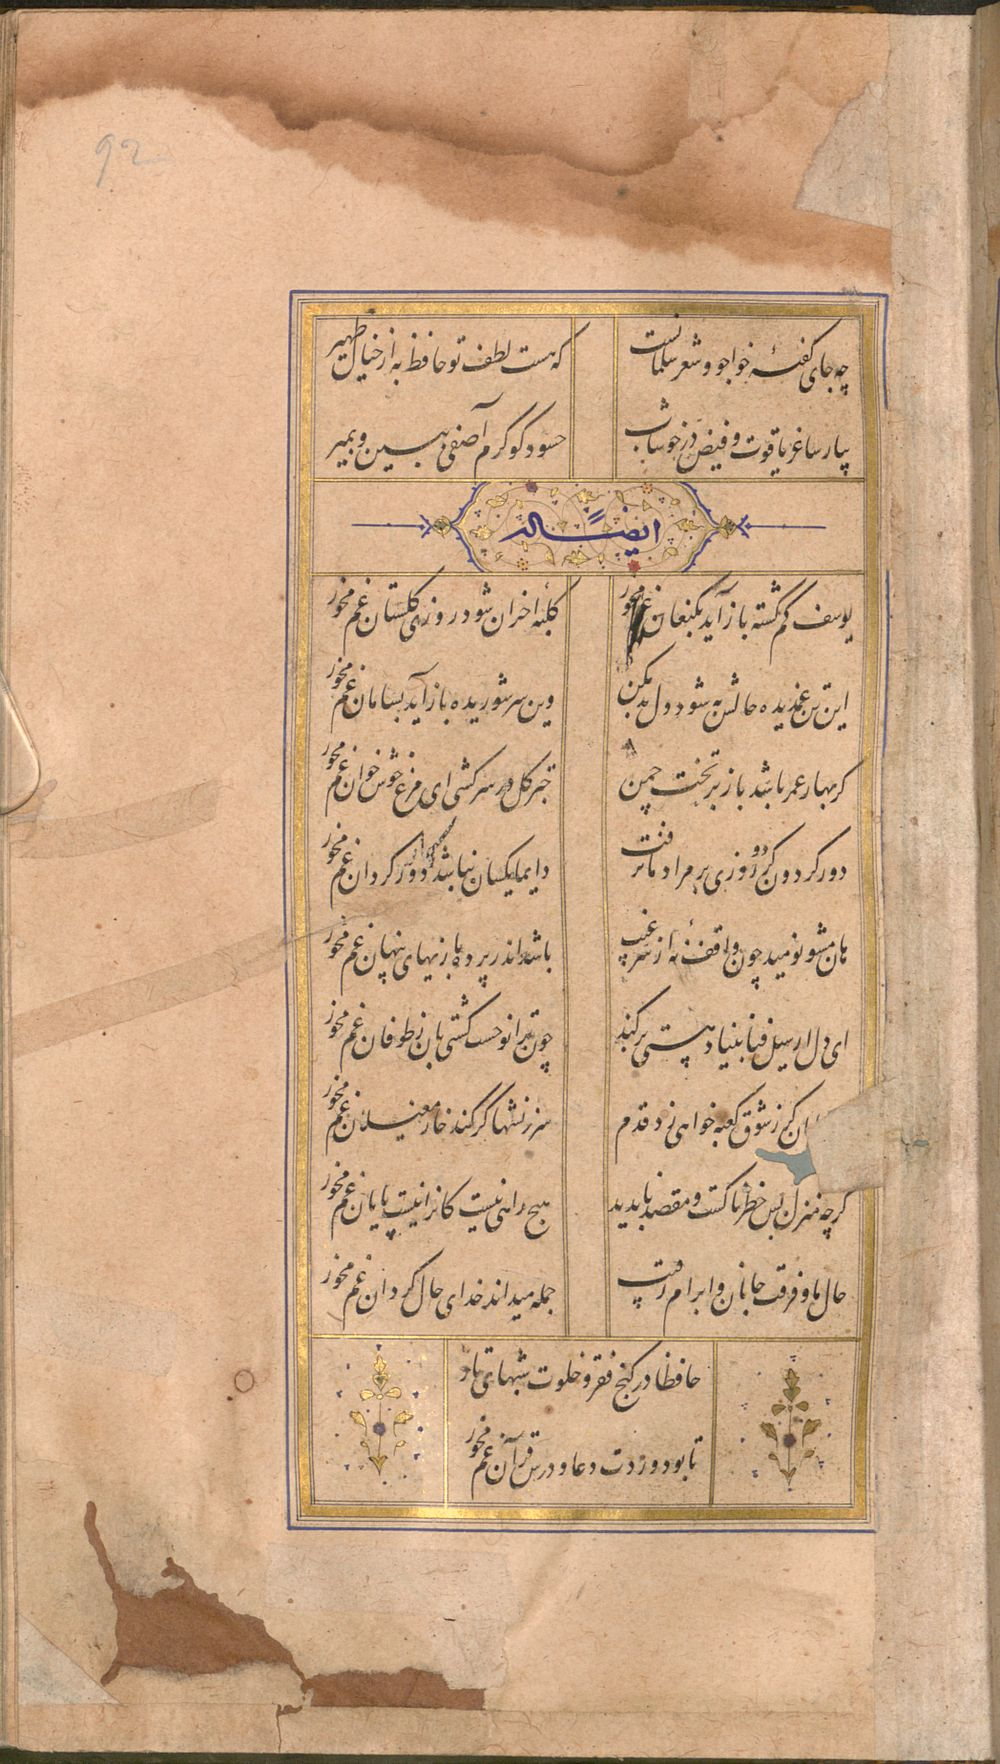 92
چه جای کفتهٔ خواجو و شعر سلمانست
که هست لطف تو حافظ به از خیال ظهیر
بیار ساغر یاقوت و فیض در خوشاب
حسود کو کرم آصفی ببین و بمیر
ایضاً له
یوسف کم کشته باز آید بکنعان غم مخور
کلبهٔ احزان شود روزی کلستان غم مخور
این تن غمدیده حالش به شود دل بد مکن
وین سر شوریده باز آید بسامان غم مخور
کر بهار عمر باشد باز بر تخت چمن
چتر کل در سر کشی ای مرغ خوش خوان غم مخور
دور کردون کر دو روزی بر مراد ما نرفت
دایما یکسان نباشد دور کردان غم مخور
هان مشو نومید چون واقف نهٔ از سر غیب
باشد اندر پرده بازیهای پنهان غم مخور
ای دل ار سیل فنا بنیاد هستی بر کند
چون ترا نوحست کشتی بان ز طوفان غم مخور
کر ز شوق کعبه خواهی زد قدم
سرزنشها کر کند خار مغیلان غم مخور
کرچه منزل بس خطرناکست و مقصد ناپدید
هیچ راهی نیست کانرا نیست پایان غم مخور
حال ما و فرقت جانان و ابرام رقیب
جمله میداند خدای حال کردان غم مخور
حافظا در کنج فقر و خلوت شبهای تار
تا بود وردت دعا و درس قرآن غم مخور